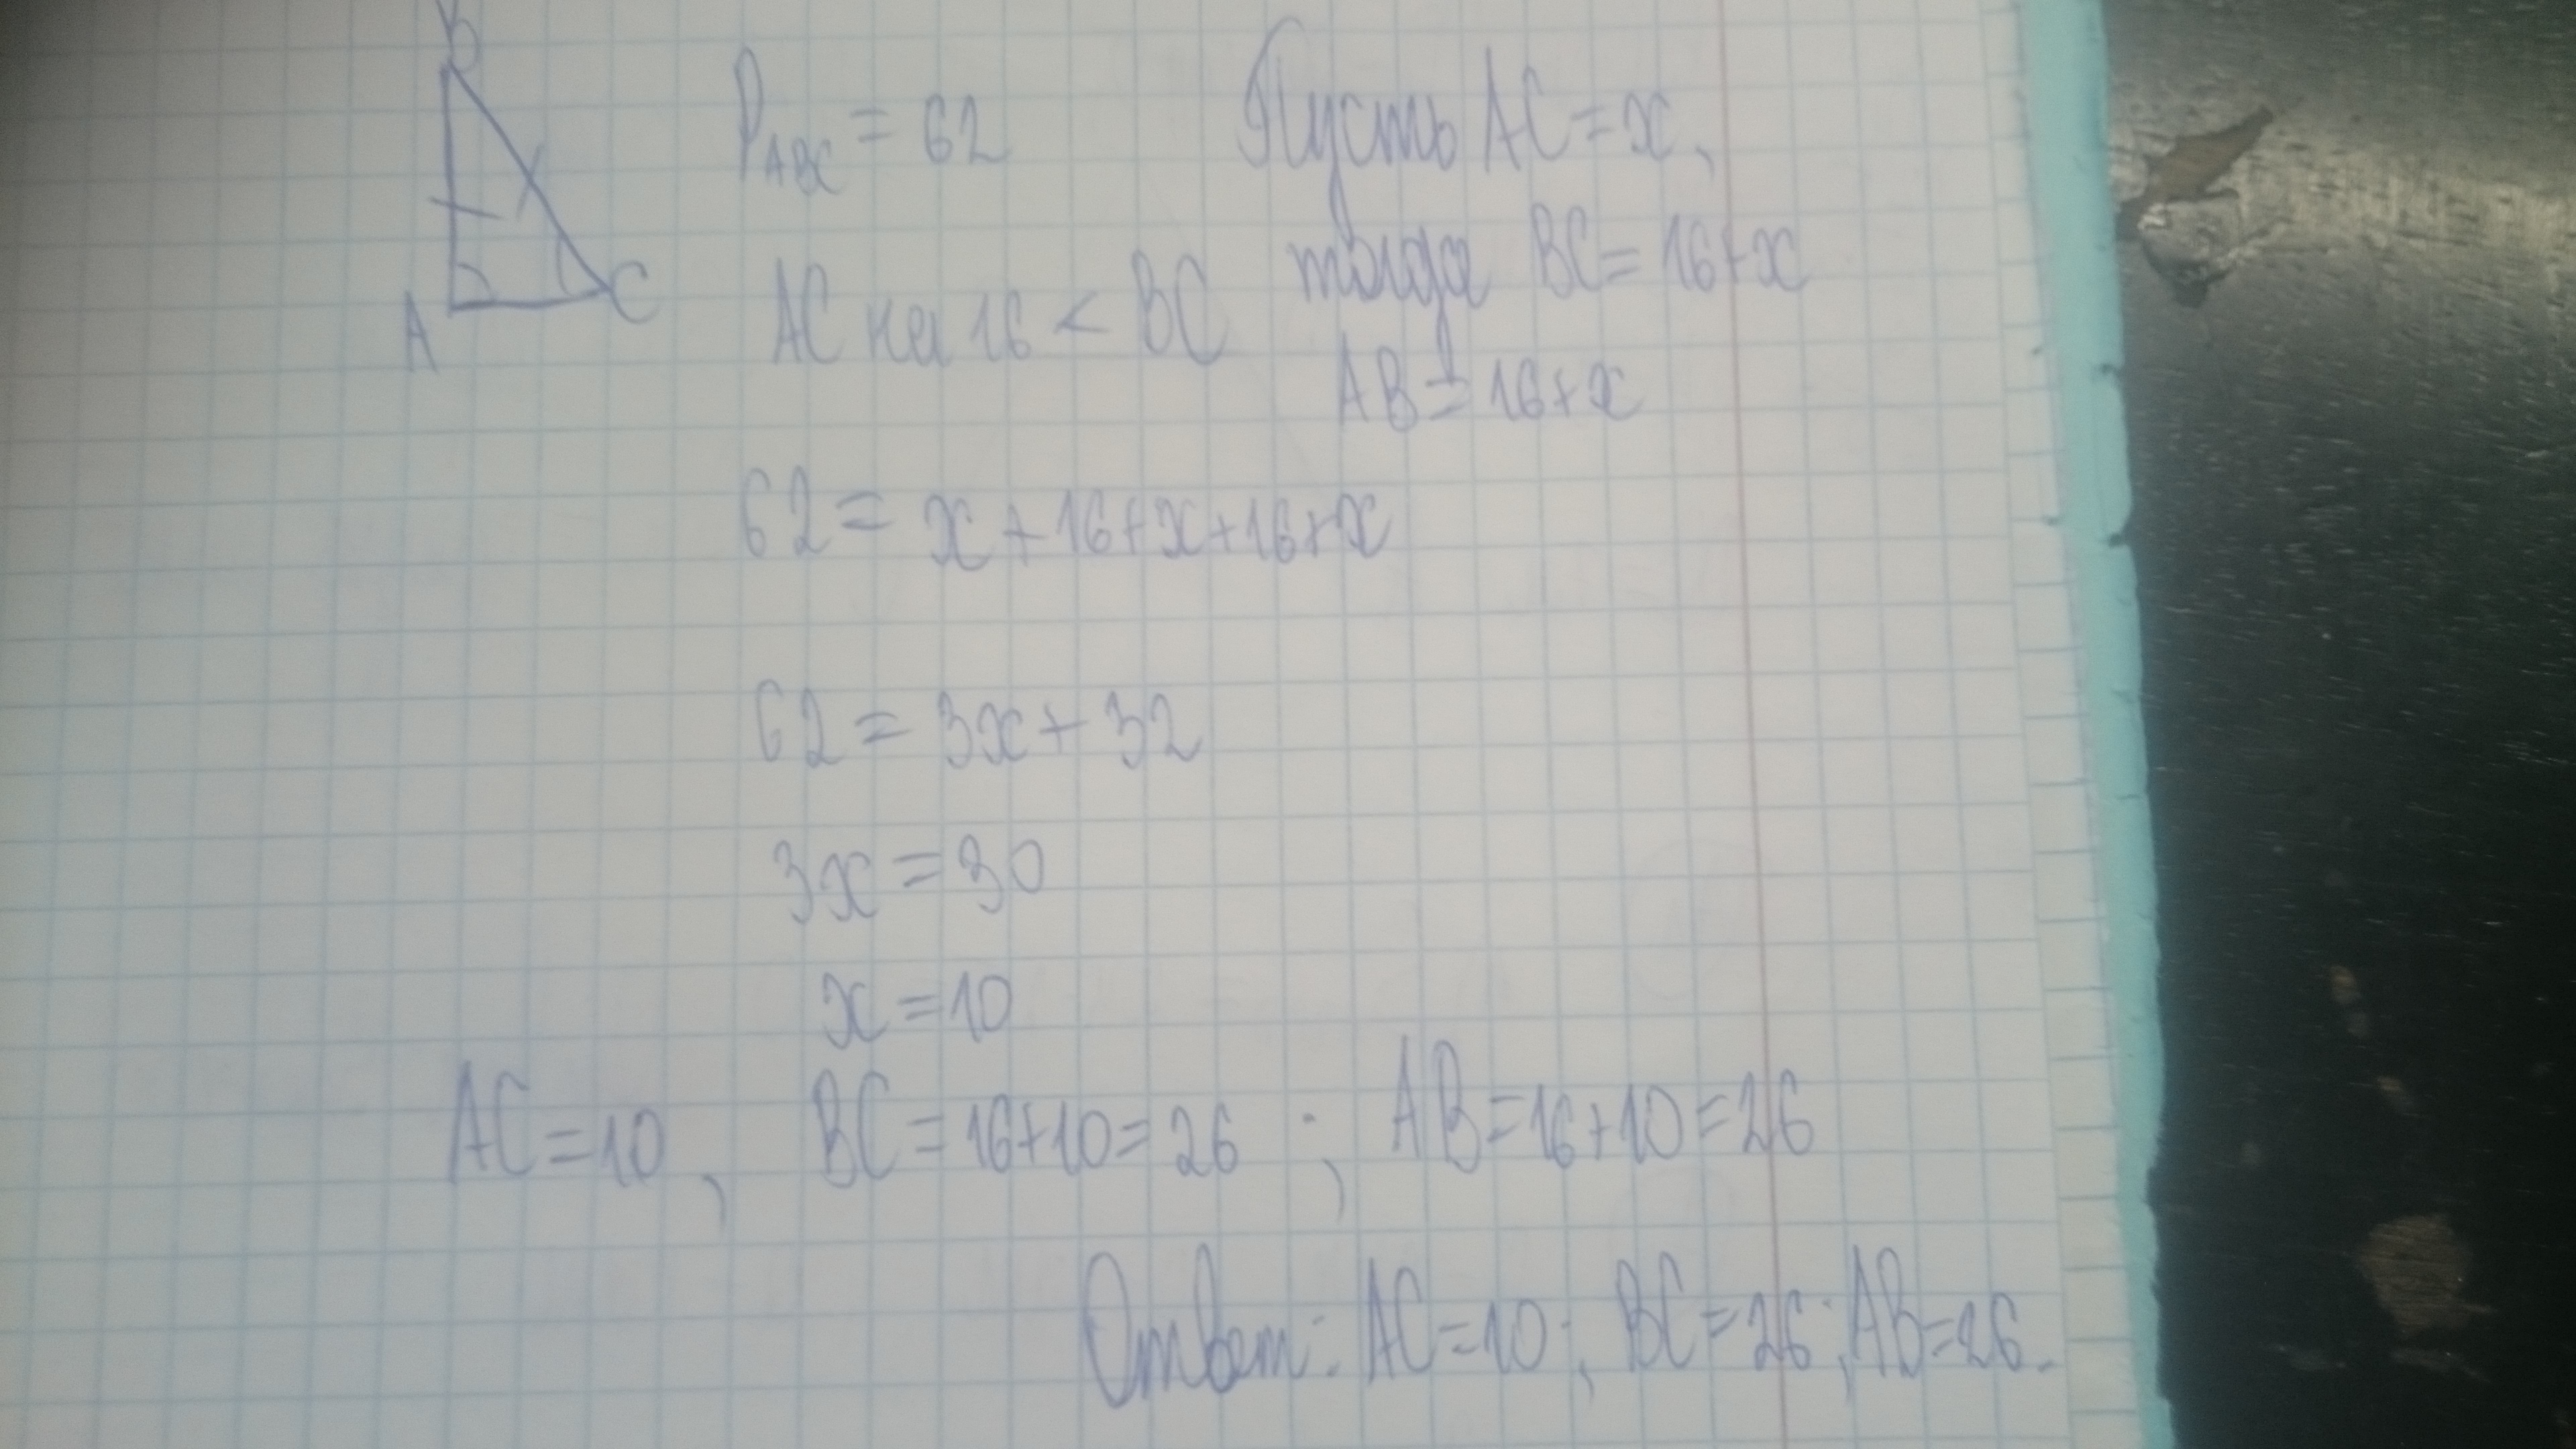 B
A
C
P_ABC = 62
AC на 16 < BC
Пусть AC = x,
тогда BC = 16+x
AB = 16+x
62 = x + 16+x+16+x
62 = 3x + 32
3x = 30
x = 10
AC = 10, BC = 16+10 = 26 ; AB = 16+10 = 26
Ответ: AC = 10; BC = 26; AB = 26.